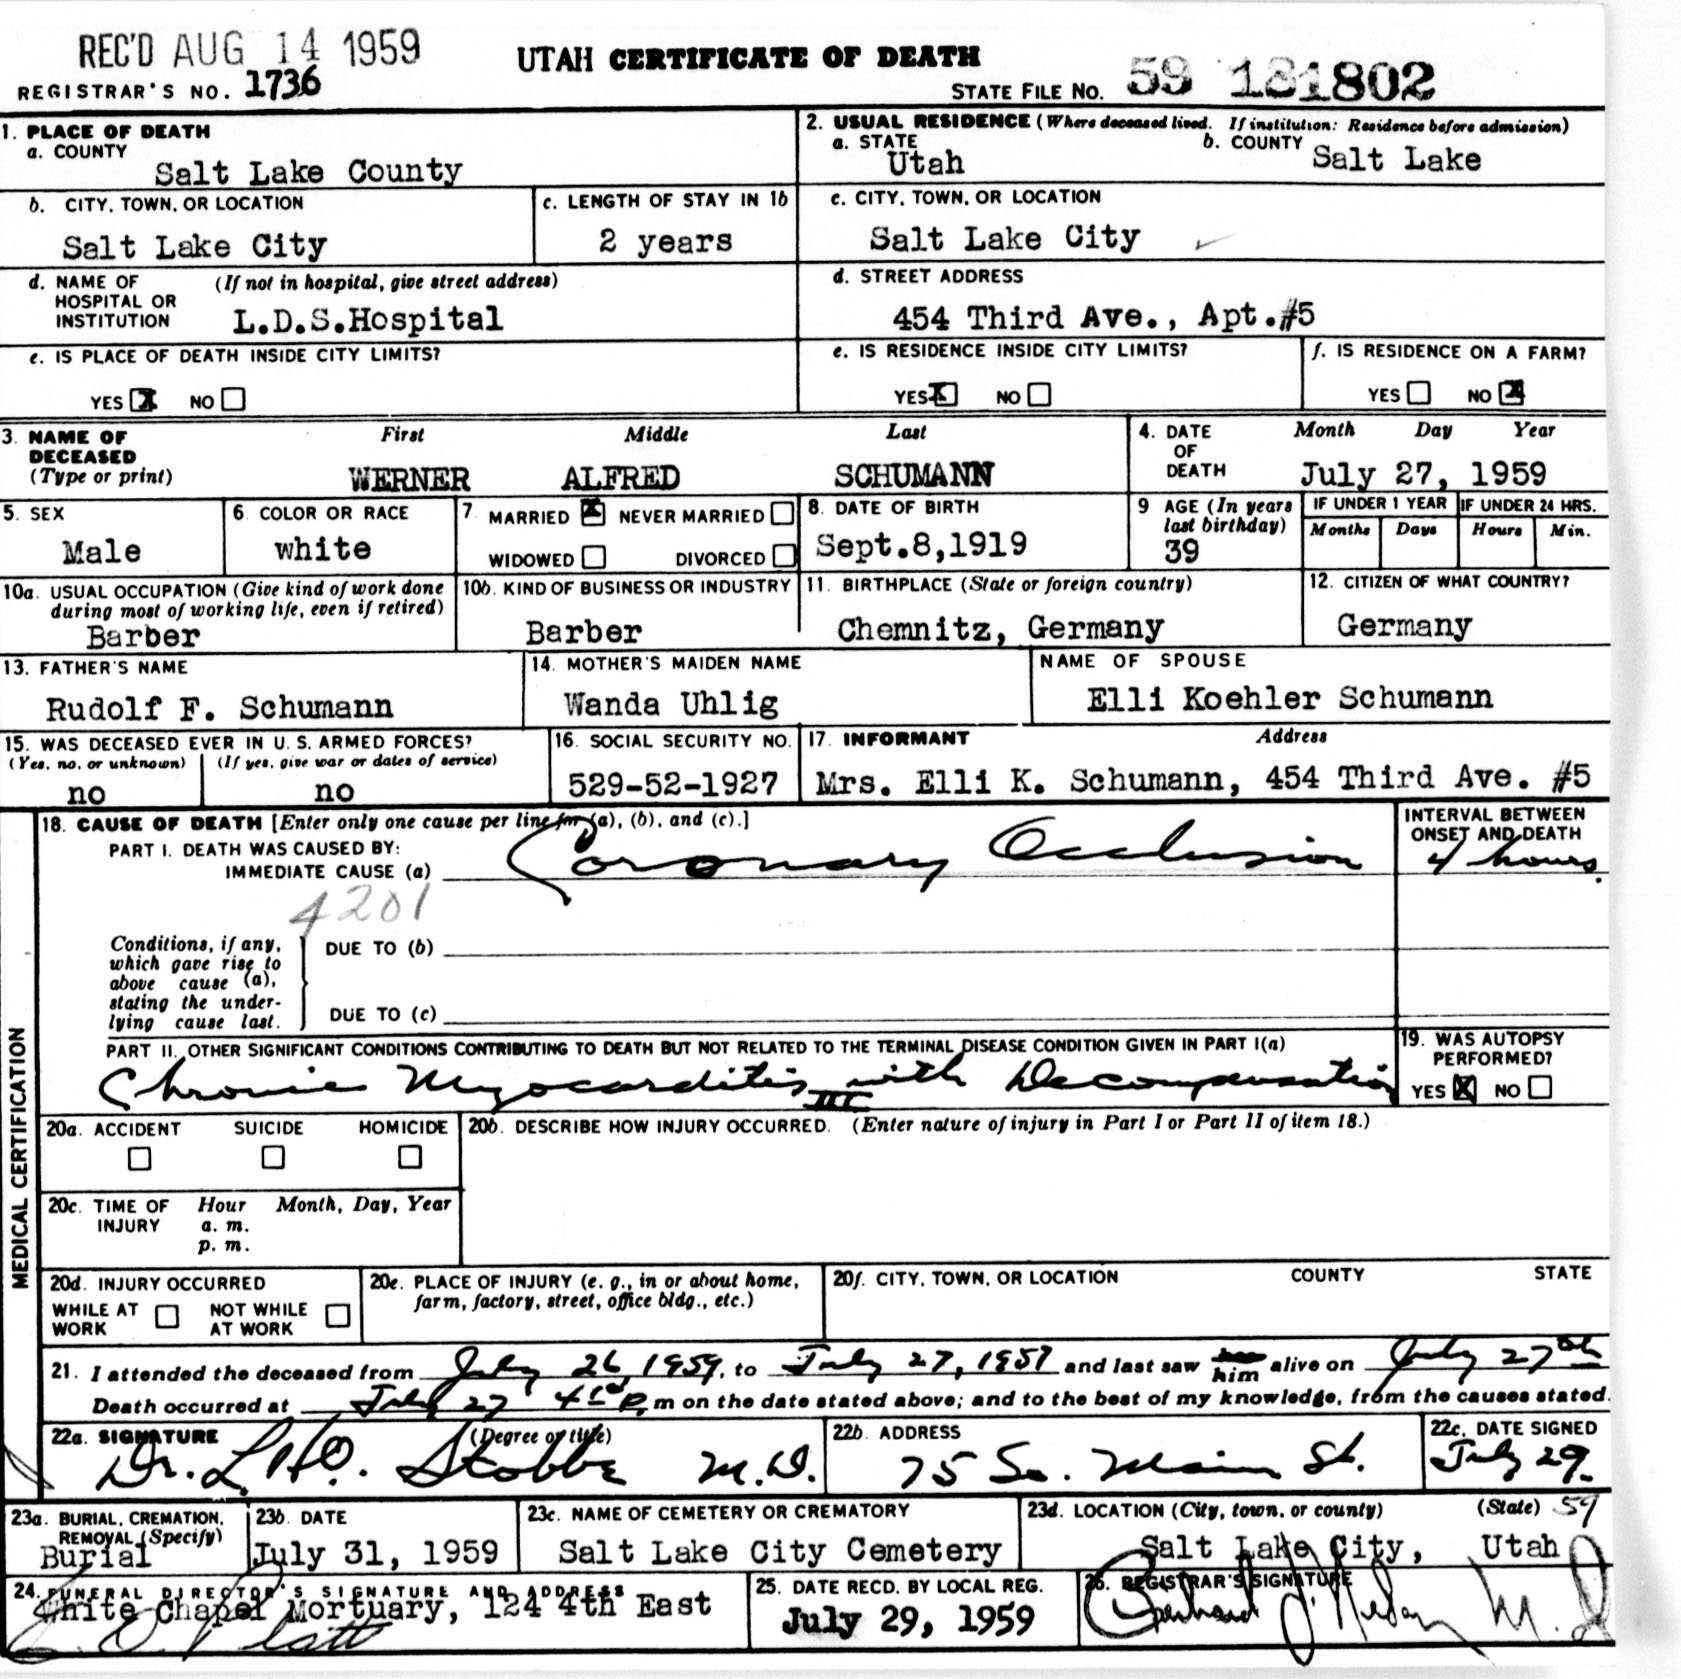 REC'D AUG 14 1959
UTAH CERTIFICATE OF DEATH
REGISTRAR'S NO. 1736
STATE FILE NO. 59 181802
1. PLACE OF DEATH
a. COUNTY
Salt Lake County
2. USUAL RESIDENCE (Where deceased lived. If institution: Residence before admission)
a. STATE b. COUNTY
Utah Salt Lake
b. CITY, TOWN, OR LOCATION
Salt Lake City
c. LENGTH OF STAY IN 1b
2 years
c. CITY, TOWN, OR LOCATION
Salt Lake City
d. NAME OF (If not in hospital, give street address)
HOSPITAL OR
INSTITUTION L.D.S.Hospital
d. STREET ADDRESS
454 Third Ave., Apt.#5
e. IS PLACE OF DEATH INSIDE CITY LIMITS?
YES X NO
e. IS RESIDENCE INSIDE CITY LIMITS?
YES X NO
f. IS RESIDENCE ON A FARM?
YES NO X
3. NAME OF DECEASED
(Type or print)
First Middle Last
WERNER ALFRED SCHUMANN
4. DATE OF DEATH
Month Day Year
July 27, 1959
5. SEX
Male
6. COLOR OR RACE
white
7. MARRIED X NEVER MARRIED
WIDOWED DIVORCED
8. DATE OF BIRTH
Sept.8,1919
9 AGE (In years last birthday)
39
IF UNDER 1 YEAR
Months Days
IF UNDER 24 HRS.
Hours Min.
10a. USUAL OCCUPATION (Give kind of work done
during most of working life, even if retired)
Barber
10b. KIND OF BUSINESS OR INDUSTRY
Barber
11. BIRTHPLACE (State or foreign country)
Chemnitz, Germany
12. CITIZEN OF WHAT COUNTRY?
Germany
13. FATHER'S NAME
Rudolf F. Schumann
14. MOTHER'S MAIDEN NAME
Wanda Uhlig
NAME OF SPOUSE
Elli Koehler Schumann
15. WAS DECEASED EVER IN U. S. ARMED FORCES?
(Yes, no, or unknown) (If yes, give war or dates of service)
no no
16. SOCIAL SECURITY NO.
529-52-1927
17. INFORMANT Address
Mrs. Elli K. Schumann, 454 Third Ave. #5
MEDICAL CERTIFICATION
18. CAUSE OF DEATH [Enter only one cause per line for (a), (b), and (c).]
PART I. DEATH WAS CAUSED BY:
IMMEDIATE CAUSE (a) Coronary Occlusion
INTERVAL BETWEEN
ONSET AND DEATH
4 hours.
4201
Conditions, if any,
which gave rise to
above cause (a),
stating the under-
lying cause last.
DUE TO (b)
DUE TO (c)
PART II. OTHER SIGNIFICANT CONDITIONS CONTRIBUTING TO DEATH BUT NOT RELATED TO THE TERMINAL DISEASE CONDITION GIVEN IN PART I(a)
Chronic Myocarditis with Decompensation
III
19. WAS AUTOPSY
PERFORMED?
YES X NO
20a. ACCIDENT SUICIDE HOMICIDE
20b. DESCRIBE HOW INJURY OCCURRED. (Enter nature of injury in Part I or Part II of item 18.)
20c. TIME OF INJURY
Hour Month, Day, Year
a. m.
p. m.
20d. INJURY OCCURRED
WHILE AT WORK NOT WHILE AT WORK
20e. PLACE OF INJURY (e. g., in or about home,
farm, factory, street, office bldg., etc.)
20f. CITY, TOWN, OR LOCATION COUNTY STATE
21. I attended the deceased from July 26, 1959, to July 27, 1959 and last saw him alive on July 27th
Death occurred at July 27 m on the date stated above; and to the best of my knowledge, from the causes stated.
22a. SIGNATURE (Degree or title)
Dr. L.H.O. Stobbe M.D.
22b. ADDRESS
75 So. Main St.
22c. DATE SIGNED
July 29.
59
23a. BURIAL, CREMATION,
REMOVAL (Specify)
Burial
23b. DATE
July 31, 1959
23c. NAME OF CEMETERY OR CREMATORY
Salt Lake City Cemetery
23d. LOCATION (City, town, or county) (State)
Salt Lake City, Utah
24. FUNERAL DIRECTOR'S SIGNATURE AND ADDRESS
White Chapel Mortuary, 124 4th East
25. DATE RECD. BY LOCAL REG.
July 29, 1959
26. REGISTRAR'S SIGNATURE